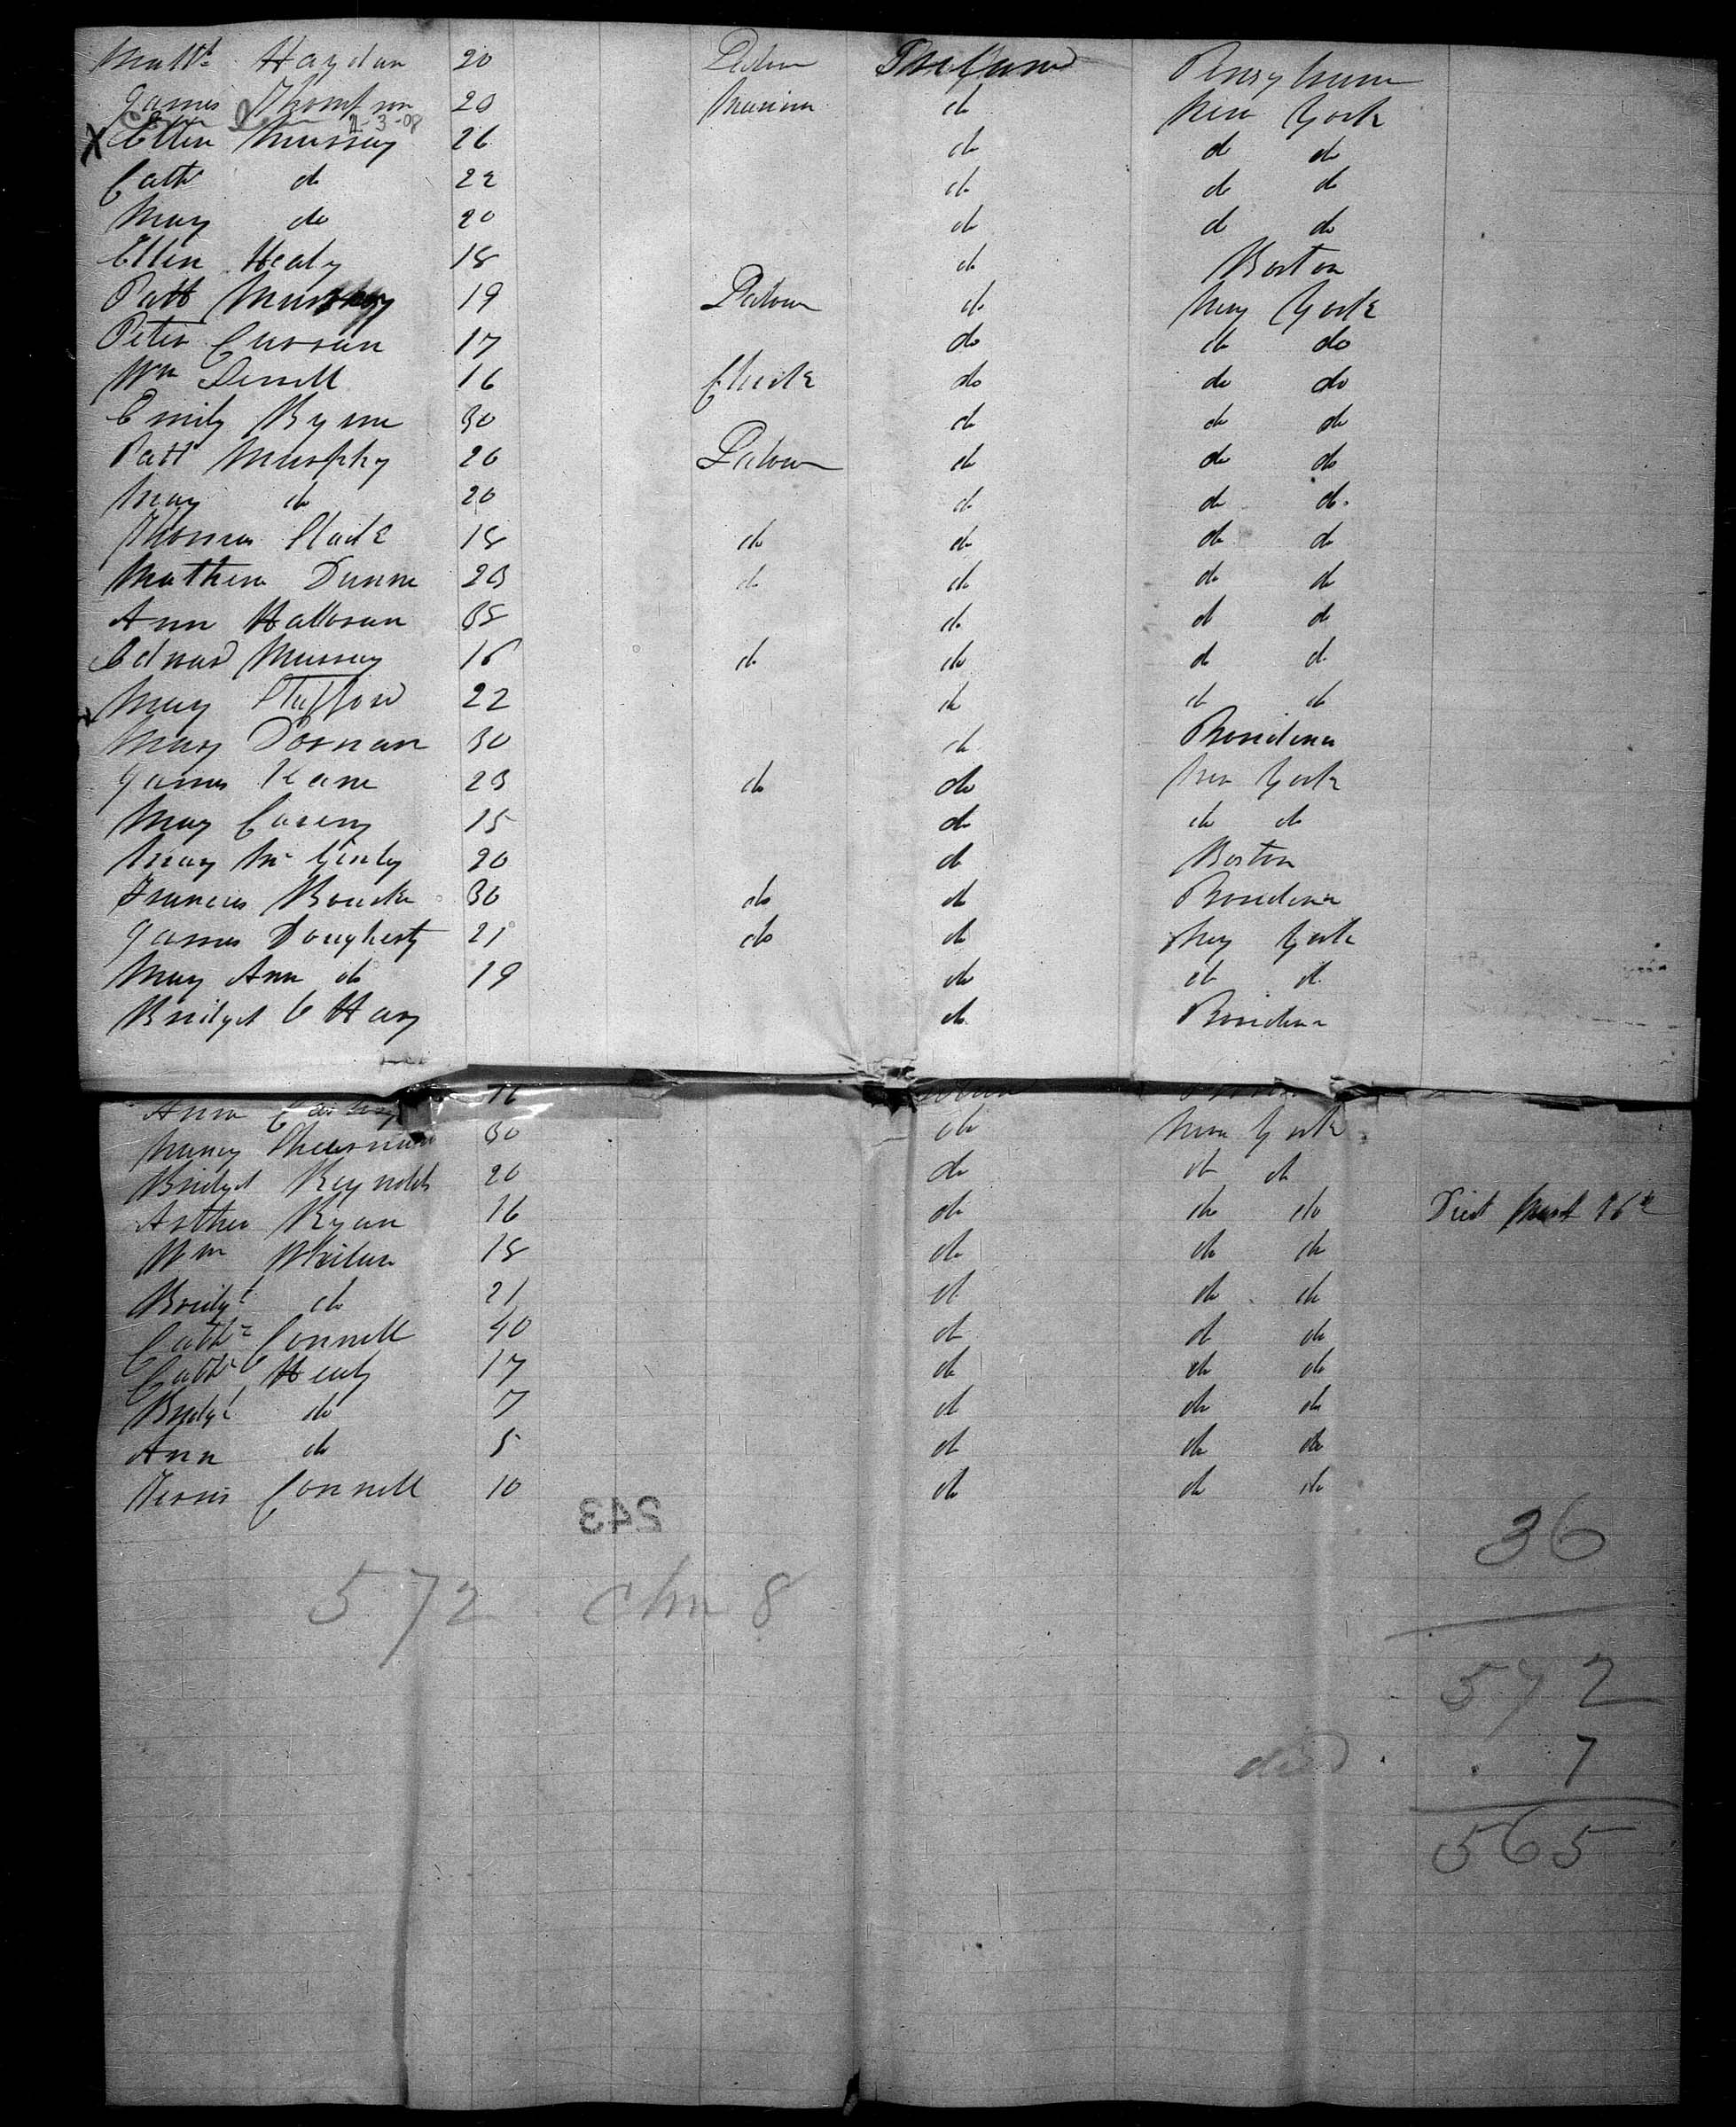 Matt Haydan 20 Labour Ireland
James Thompson 23 do New York
2-3-08
X Ellen Murray 26 do do do
Cath do 22 do do do
Mary do 20 do do do
Ellen Healy 18 do Boston
Patt 19 Labour do New York
Peter Curran 17 do do do
Wm 16 Clerk do do do
Emily Byrne 30 do do do
Patt Murphy 26 Labour do do do
Mary do 20 do do do
Thomas 18 do do do do
Mathew Dunne 23 do do do do
Ann Halloran 35 do do do
Edward Murray 16 do do do do
Mary Stafford 22 do do do
Mary Dornan 30 do Providence
James Kane 23 do do New York
Mary Casey 15 do do do
Mary McGinly 20 do Boston
Francis Bourke 30 do do Providence
James Dougherty 21 do do New York
Mary Ann do 19 do do do
Bridget O Hay do Providence
Ann 16
Nancy 30 do New York
Bridget Reynolds 20 do do do
Arthur Ryan 16 do do do Died 16th
Wm 18 do do do
Bridgt do 21 do do do
Cathe Connell 40 do do do
Cathe Healy 17 do do do
Bridgt do 7 do do do
Ann do 5 do do do
Connell 10 do do do
243
36
572 chn 8
572
died 7
565